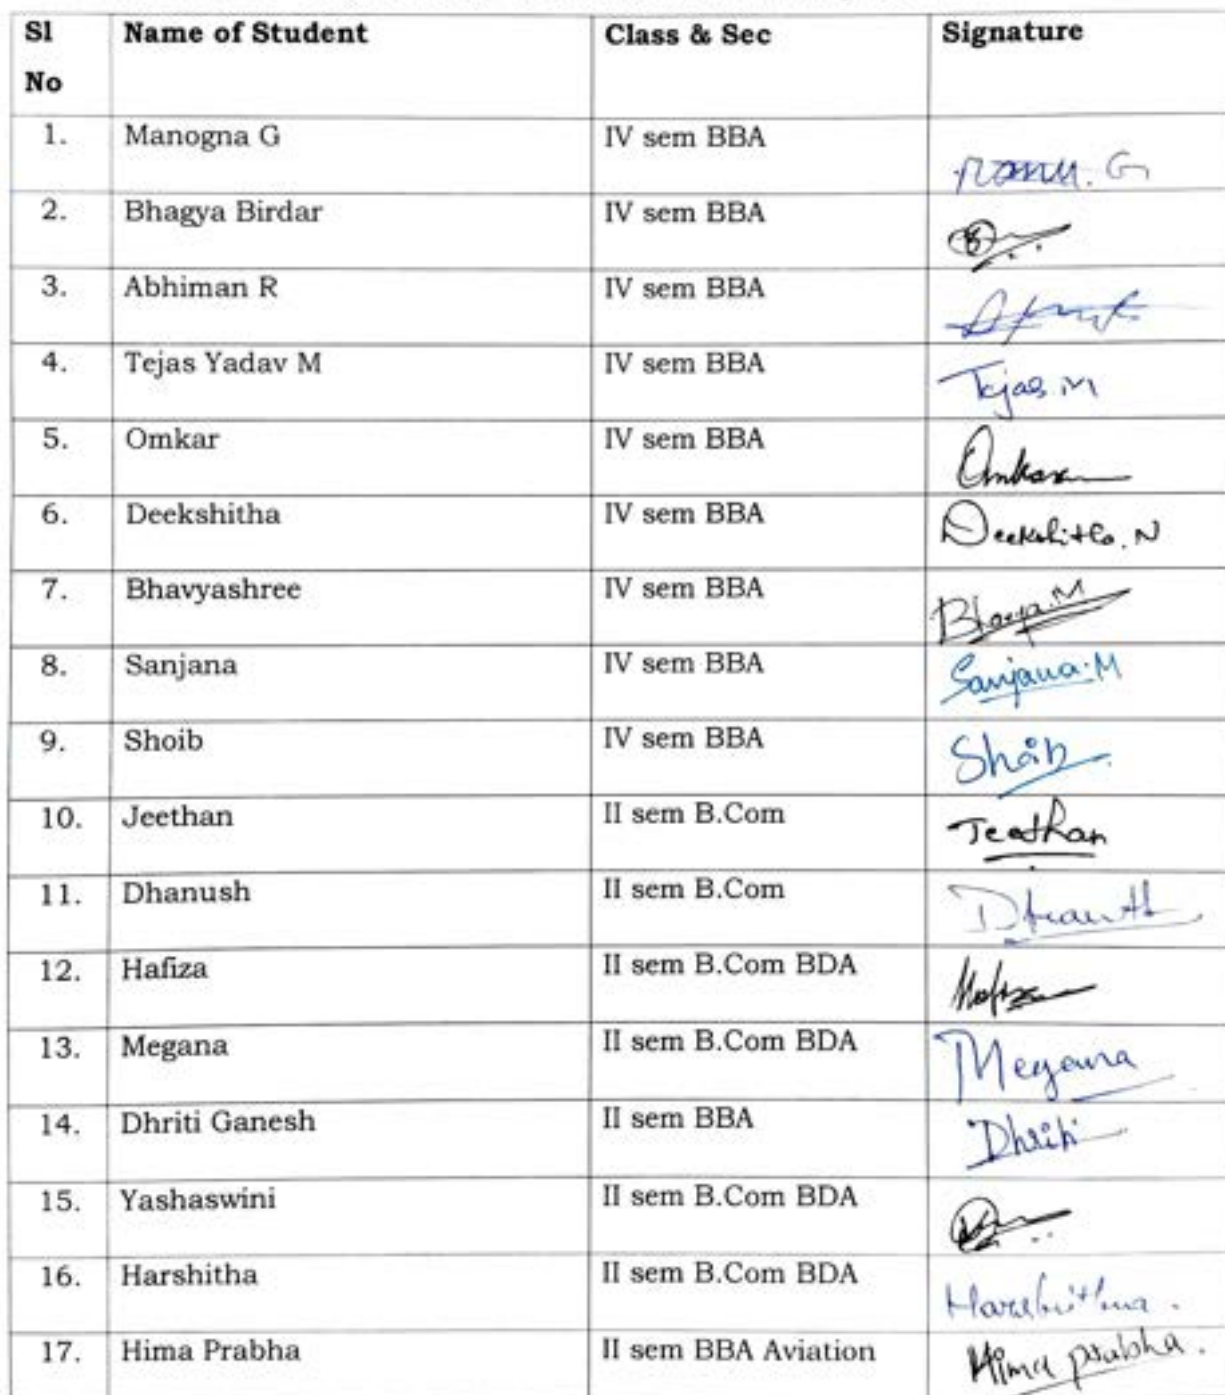 Sl No Name of Student Class & Sec Signature
1. Manogna G IV sem BBA
2. Bhagya Birdar IV sem BBA
3. Abhiman R IV sem BBA
4. Tejas Yadav M IV sem BBA Tejas.M
5. Omkar IV sem BBA Omkar
6. Deekshitha IV sem BBA Deekshitha.N
7. Bhavyashree IV sem BBA Bhavya.M
8. Sanjana IV sem BBA Sanjana.M
9. Shoib IV sem BBA Shoib
10. Jeethan II sem B.Com Jeethan
11. Dhanush II sem B.Com
12. Hafiza II sem B.Com BDA Hafiza
13. Megana II sem B.Com BDA Megana
14. Dhriti Ganesh II sem BBA Dhriti
15. Yashaswini II sem B.Com BDA
16. Harshitha II sem B.Com BDA Harshitha.
17. Hima Prabha II sem BBA Aviation Hima prabha.